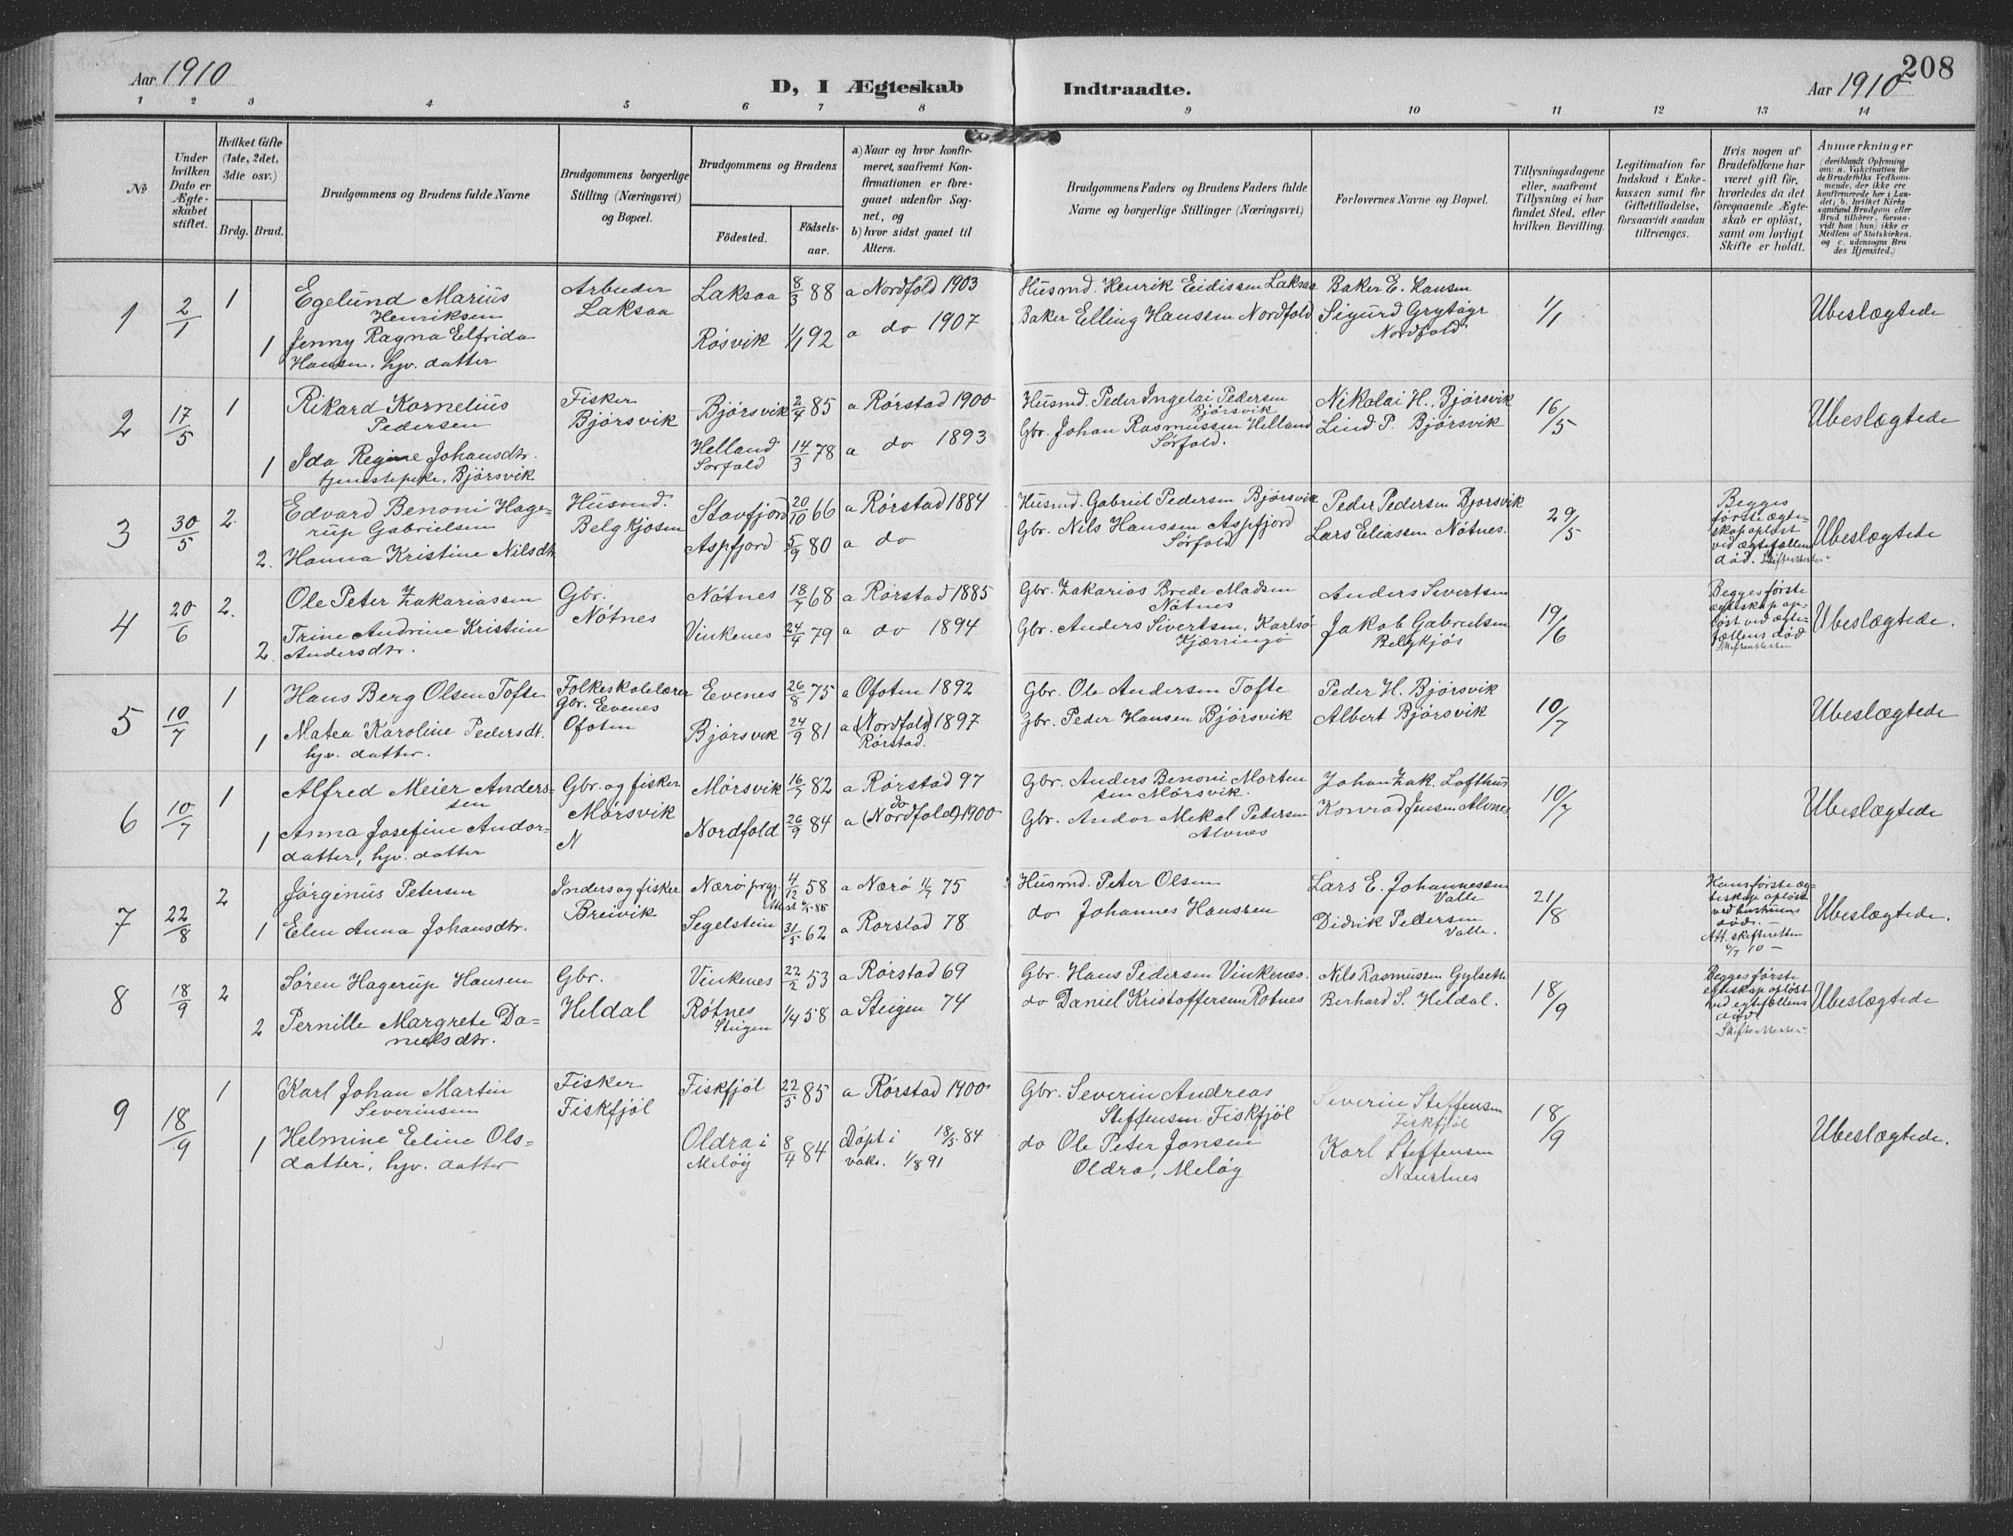 208
Aar 1910
D, I Ægteskab Indtraadte.
Aar 1910
1 2 3 4 5 6 7 8 9 10 11 12 13 14
No
Under hvilken Dato er Ægteskabet stiftet.
Hvilket Gifte (1ste, 2det, 3die osv.)
Brdg. Brud.
Brudgommens og Brudens fulde Navne
Brudgommens borgerlige Stilling (Næringsvei) og Bopæl.
Brudgommens og Brudens
Födested.
Födselsaar.
a) Naar og hvor konfirmeret, saafremt Konfirmationen er foregaaet udenför Sognet, og
b) hvor sidst gaaet til Alters.
Brudgommens Faders og Brudens Faders fulde Navne og borgerlige Stillinger (Næringsvei)
Forlovernes Navne og Bopæl.
Tillysningsdagene eller, saafremt Tillysning ei har fundet Sted, efter hvilken Bevilling.
Legitimation for Indskud i Enkekassen samt for Giftetilladelse, forsaavidt saadan tiltrænges.
Hvis nogen af Brudefolkene har været gift för, hvorledes da det foregaaende Ægteskab er oplöst, samt om lovligt Skifte er holdt.
Anmærkninger (deriblandt Oplysning om: a. Vakcination for Brudefolks Vedkommende, der ikke ere konfirmerede her i Landet; b. hvilket Kirkesamfund Brudgom eller Brud tilhörer, forsaavidt han (hun) ikke er Medlem af Statskirken, og c. udensogns Brudes Hjemsted.)
1 2/1 1 Egelund Marius Henriksen Arbeider Laksaa Laksaa 8/3 88 a Nordfold 1903 Husmd. Henrik Eidissen Laksaa Baker E. Hansen 1/1 Ubeslægtede
1 Jenny Ragna Elfrida Hansen, hjv. datter Røsvik 1/1 92 a do 1907 Baker Elling Hanssen Nordfold Sigurd Grytøyr Nordfold
2 17/5 1 Rikard Kornelius Pedersen Fisker Bjørsvik Bjørsvik 2/4 85 a Rørstad 1900 Husmd. Peder Ingelai Pedersen Bjørsvik Nikolai H. Bjørsvik 16/5 Ubeslægtede
1 Ida Regine Johansdtr. tjenestepike, Bjørsvik Helland Sørfold 14/3 78 a do 1893 Gbr. Johan Rasmussen Helland Sørfold. Lind P. Bjørsvik
3 30/5 2. Edvard Benoni Hagerup Gabrielsen Husmd. Belgkjosen Stavfjord 20/10 66 a Rørstad 1884 Husmd. Gabriel Pedersen Bjørsvik Peder Pedersen Bjørsvik 29/5 Begges første ægteskap opløst ved ægtefællens død. Ubeslægtede
2. Hanna Kristine Nilsdtr Aspfjord 5/9 80 a do Gbr. Nils Hanssen Aspfjord Sørfold Lars Eliassen Nøtnes.
4 20/6 2. Ole Peter Zakariassen Gbr. Nøtnes Nøtnes 18/7 68 a Rørstad 1885 Gbr. Zakarias Brede Madsen Nøtnes Anders Sivertsen 19/6 Begges første ægteskap opløst ved ægtefællens død Ubeslægtede.
2. Trine Andrine Kristine Andersdtr. Vinkenes 24/4 79 a do 1894 Gbr. Anders Sivertsen, Karlsø Kjærringø Jakob Gabrielsen Belgkjøs
5 10/7 1 Hans Berg Olsen Tofte Folkeskolelærer Gbr. Evenes Ofoten Evenes 26/8 75 a Ofoten 1892 Gbr. Ole Andersen Tofte Peder H. Bjørsvik 10/7 Ubeslægtede
1 Matea Karoline Pedersdt. hjv. datter. Bjørsvik 24/9 81 a (Nordfold) 1897 Rørstad. Gbr. Peder Hansen Bjørsvik Albert Bjørsvik
6 10/7 1 Alfred Meier Anderssen Gbr. og fisker Mørsvik N Mørsvik 16/7 82 a Rørstad 97 Gbr. Anders Benoni Mortensen Mørsvik. Johan Zak. Lofthus 10/7 Ubeslægtede
1 Anna Josefine Andordatter, hjv. datter Nordfold 26/9 84 a do (Nordfold) 1900 Gbr. Andor Mekal Pedersen Alvnes Konrad Jensen Alvnes
7 22/8 2 Jørginus Petersen Inders og fisker Breivik Nærø prgj. 4/12 58 a Nærø 11/7 75 Husmd. Peter Olsen Lars E. Johannessen Valle 21/8 Hans første ægteskap opløst ved hustruens død. Att. skifteretten 6/7 10 - Ubeslægtede.
1 Elen Anna Johansdtr. Segelstein 31/5 62 a Rørstad 78 do Johannes Hanssen Didrik Pedersen Valle.
8 18/9 2 Søren Hagerup Hansen Gbr. Heldal Vinkenes 22/2 53 a Rørstad 69 Gbr. Hans Pedersen Vinkenes. Nils Rasmussen Gylseth 18/9 Begges første egteskap opløst ved egtefællens død Ubeslægtede
2 Pernille Margrete Danielsdtr. Røtnes Steigen 1/4 58 a Steigen 74 do Daniel Kristoffersen Røtnes Berhard S. Heldal.
9 18/9 1 Karl Johan Martin Severinsen Fisker Fiskfjøl Fiskfjøl 22/5 85 a Rørstad 1900 Gbr. Severin Andreas Steffensen Fiskfjøl Severin Steffensen Fiskfjøl 18/9 Ubeslægtede.
1 Helmine Eline Olsdatter, hjv. datter Oldra i Meløy 8/4 84 Døpt i 18/5 84 vaks. 1/8 91 do Ole Peter Jansen Oldra, Meløy Karl Steffensen Naustnes